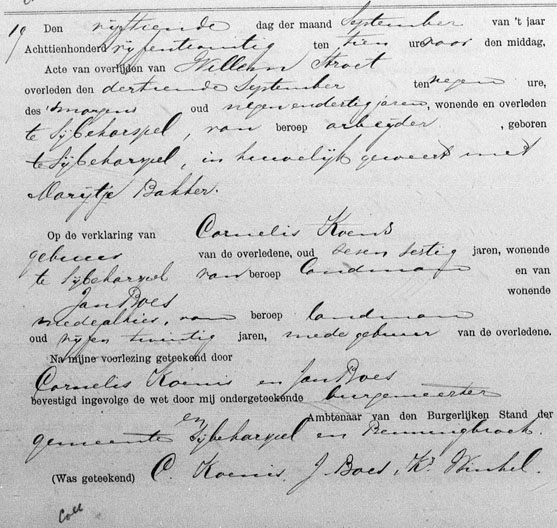 19 Den vijftiende dag der maand September van 't jaar
Achttienhonderd vijfentwintig ten tien ure voor den middag,
Acte van overlijden van Willem Stroet
overleden den dertiende September ten negen ure,
des 'smorgens oud negenendertig jaren, wonende en overleden
te Sijbekarspel, van beroep arbeyder, geboren
te Sijbekarspel, in huwelijk geweest met
Marijtje Bakker.
Op de verklaring van Cornelis Koenis
gebuur van de overledene, oud sestig jaren, wonende
te Sijbekarspel van beroep landman en van
Jan Boes wonende
mede alhier, van beroep landman
oud vijfentwintig jaren, mede gebuur van de overledene.
Na mijne voorlezing geteekend door
Cornelis Koenis en Jan Boes
bevestigd ingevolge de wet door mij ondergeteekende burgemeester
en Ambtenaar van den Burgerlijken Stand der
gemeente Sijbekarspel en Benningbroek.
(Was geteekend) C. Koenis. J. Boes, Kr. Winkel.
Coll